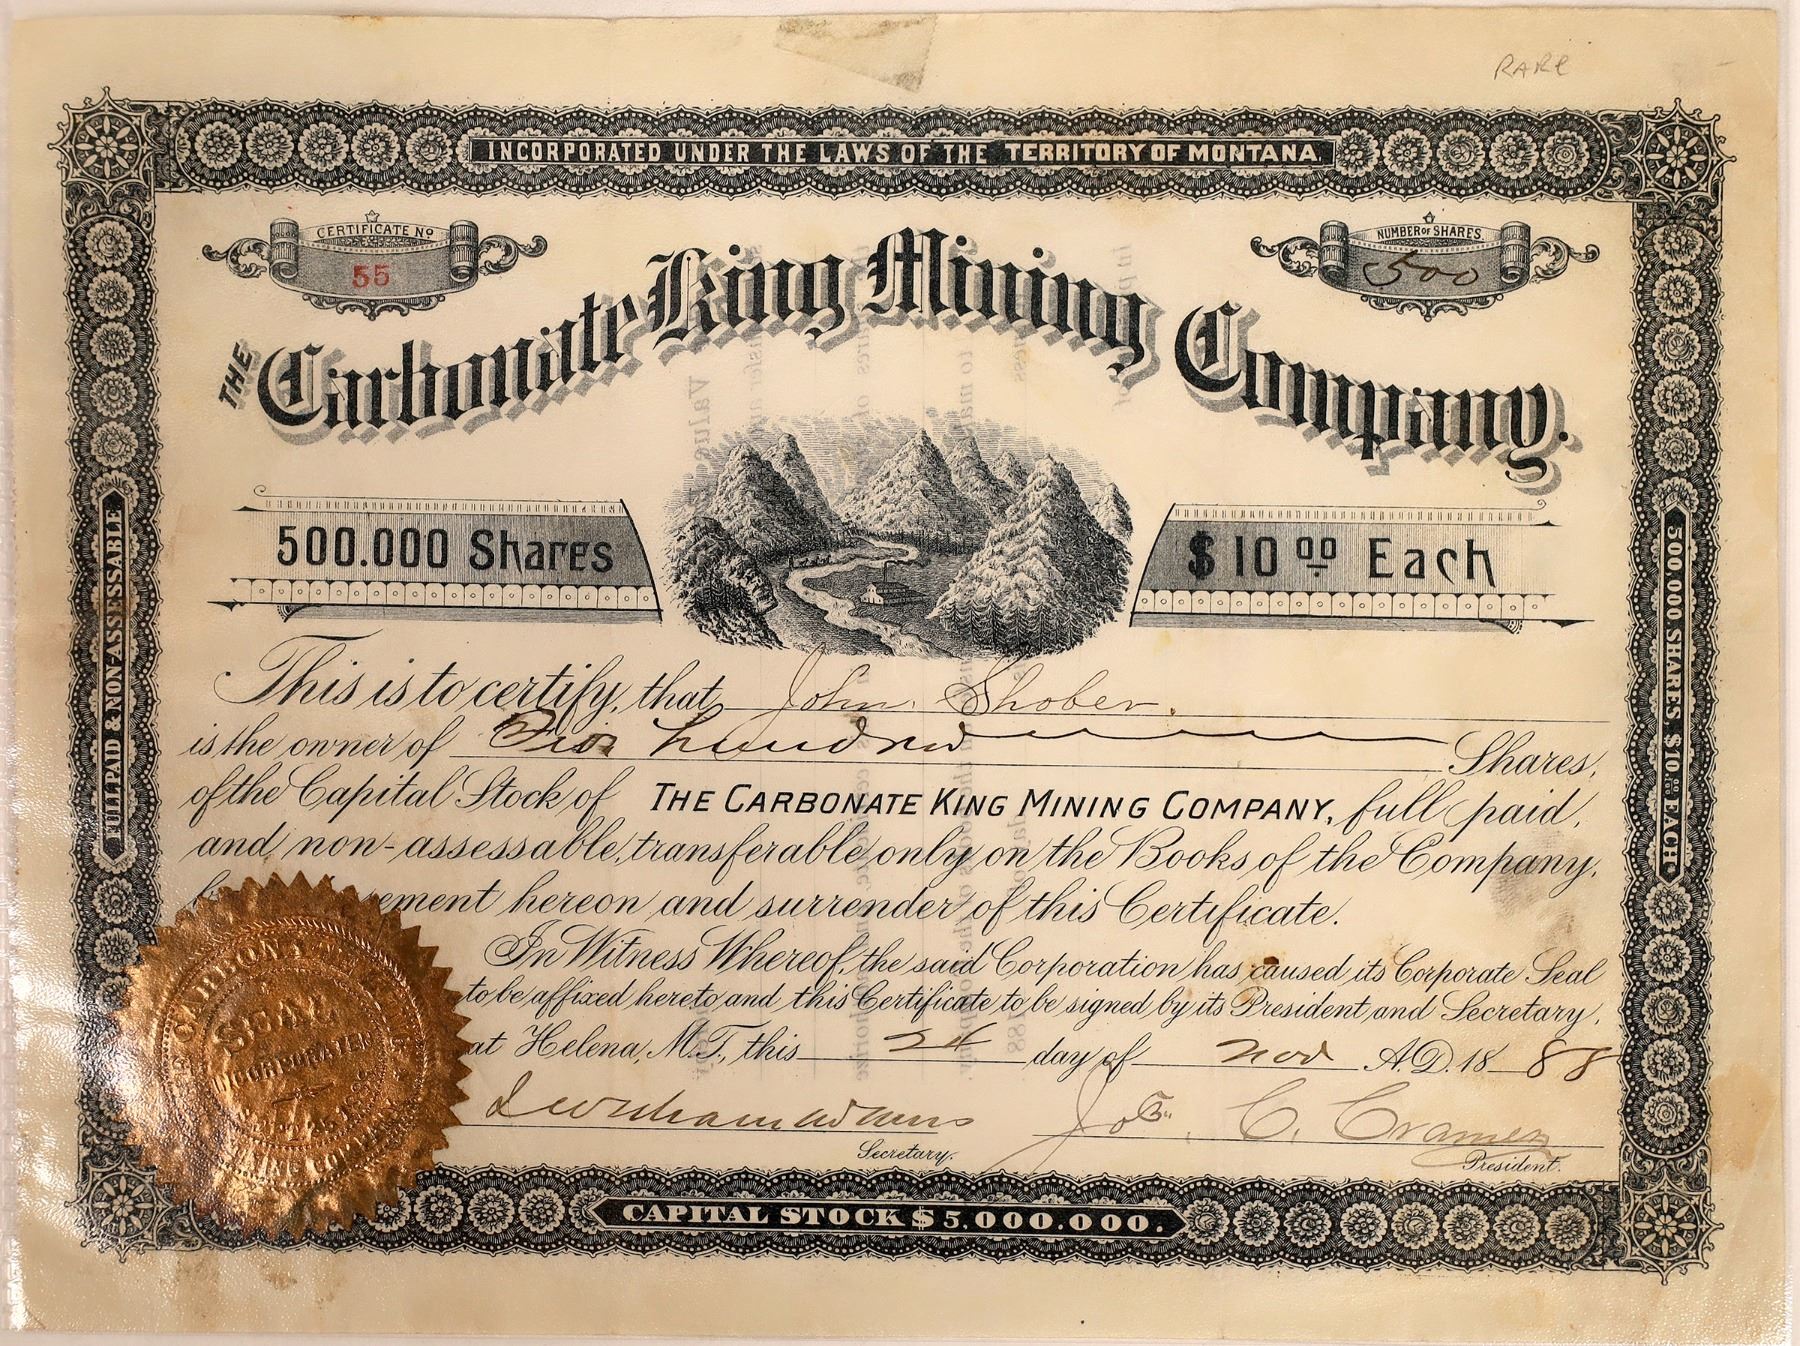 RARE
INCORPORATED UNDER THE LAWS OF THE TERRITORY OF MONTANA.
CERTIFICATE No
55
NUMBER OF SHARES
500
THE Carbonate King Mining Company.
500.000 Shares
$10 00 Each
FULL PAID & NON-ASSESSABLE
500,000 SHARES, $10.00 EACH.
This is to certify, that John Shober.
is the owner of Five hundred Shares,
of the Capital Stock of THE CARBONATE KING MINING COMPANY, full paid,
and non-assessable, transferable only on the Books of the Company,
hereon and surrender of this Certificate.
In Witness Whereof, the said Corporation has caused its Corporate Seal
to be affixed hereto and this Certificate to be signed by its President and Secretary,
at Helena, M.T., this 24 day of Nov A.D. 1888
Jos. C. Cramer
Secretary.
President.
SEAL
INCORPORATED
CAPITAL STOCK $5,000.000.